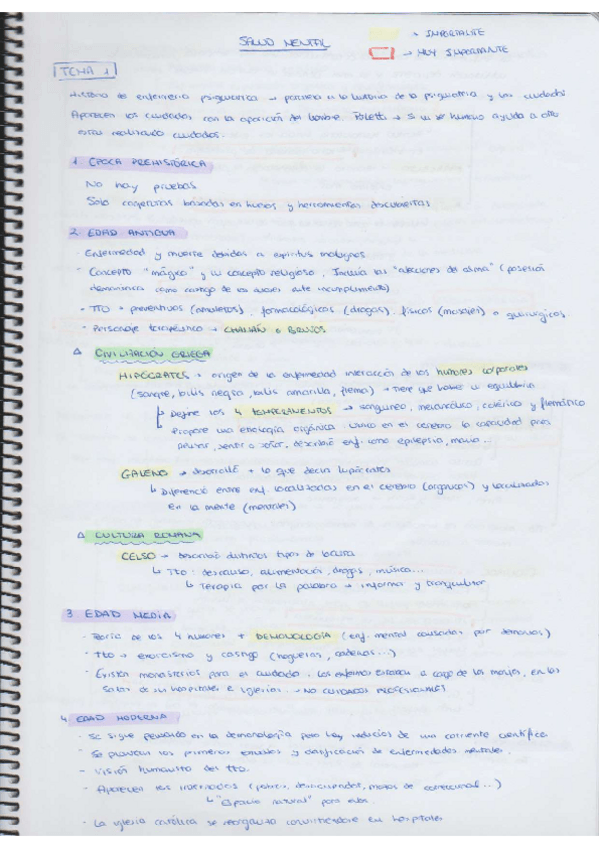 SALUD MENTAL
→ IMPORTANTE
→ MUY IMPORTANTE
TEMA 1
Historia de enfermería psiquiátrica → paralela a la historia de la psiquiatría y los cuidados
Aparecen los cuidados con la aparición del hombre. → Si un ser humano ayuda a otro
estás realizando cuidados.
1. ÉPOCA PREHISTÓRICA
No hay pruebas
Solo conjeturas basadas en huesos y herramientas descubiertas
2. EDAD ANTIGUA
- Enfermedad y muerte debidas a espíritus malignos
- Concepto "mágico" y un concepto religioso, Incluía las "afecciones del alma" (posesión
demoníaca como castigo de los dioses ante incumplimiento)
- TTO → preventivos (amuletos), farmacológicos (drogas), físicos (masajes) o quirúrgicos
- Personaje terapéutico → CHAMÁN o BRUJOS
Δ CIVILIZACIÓN GRIEGA
HIPÓCRATES → origen de la enfermedad interacción de los humores corporales
(sangre, bilis negra, bilis amarilla, flema) → tiene que haber un equilibrio
↳ Define los 4 TEMPERAMENTOS → sanguíneo, melancólico, colérico y flemático
↳ Propone una etiología orgánica. en el cerebro la capacidad para
pensar, sentir o soñar, describió enf. como epilepsia, manía...
GALENO → desarrolló + lo que decía Hipócrates
↳ Diferenció entre enf. localizadas en el cerebro (orgánicas) y localizadas
en la mente (mentales)
Δ CULTURA ROMANA
CELSO → Describió distintos tipos de locura
↳ TTO: descanso, alimentación, drogas, música...
↳ Terapia por la palabra → informar y tranquilizar
3. EDAD MEDIA
- Teoría de los 4 humores + DEMONOLOGÍA (enf. mental causadas por demonios)
- TTO → exorcismo y castigo (hogueras, cadenas...)
- Existen monasterios para el cuidado. Los enfermos estaban a cargo de los monjes, en las
salas de sus hospitales e iglesias. → NO CUIDADOS PROFESIONALES
4. EDAD MODERNA
- Se sigue pensando en la demonología pero hay indicios de una corriente científica
- Se producen los primeros estudios y clasificación de enfermedades mentales.
- Visión humanista del TTO.
- Aparecen los internados (pobres, delincuentes, mozos de correccional...)
↳ "Espacio natural" para ellos.
- La iglesia católica se reorganizó convirtiéndose en hospitales